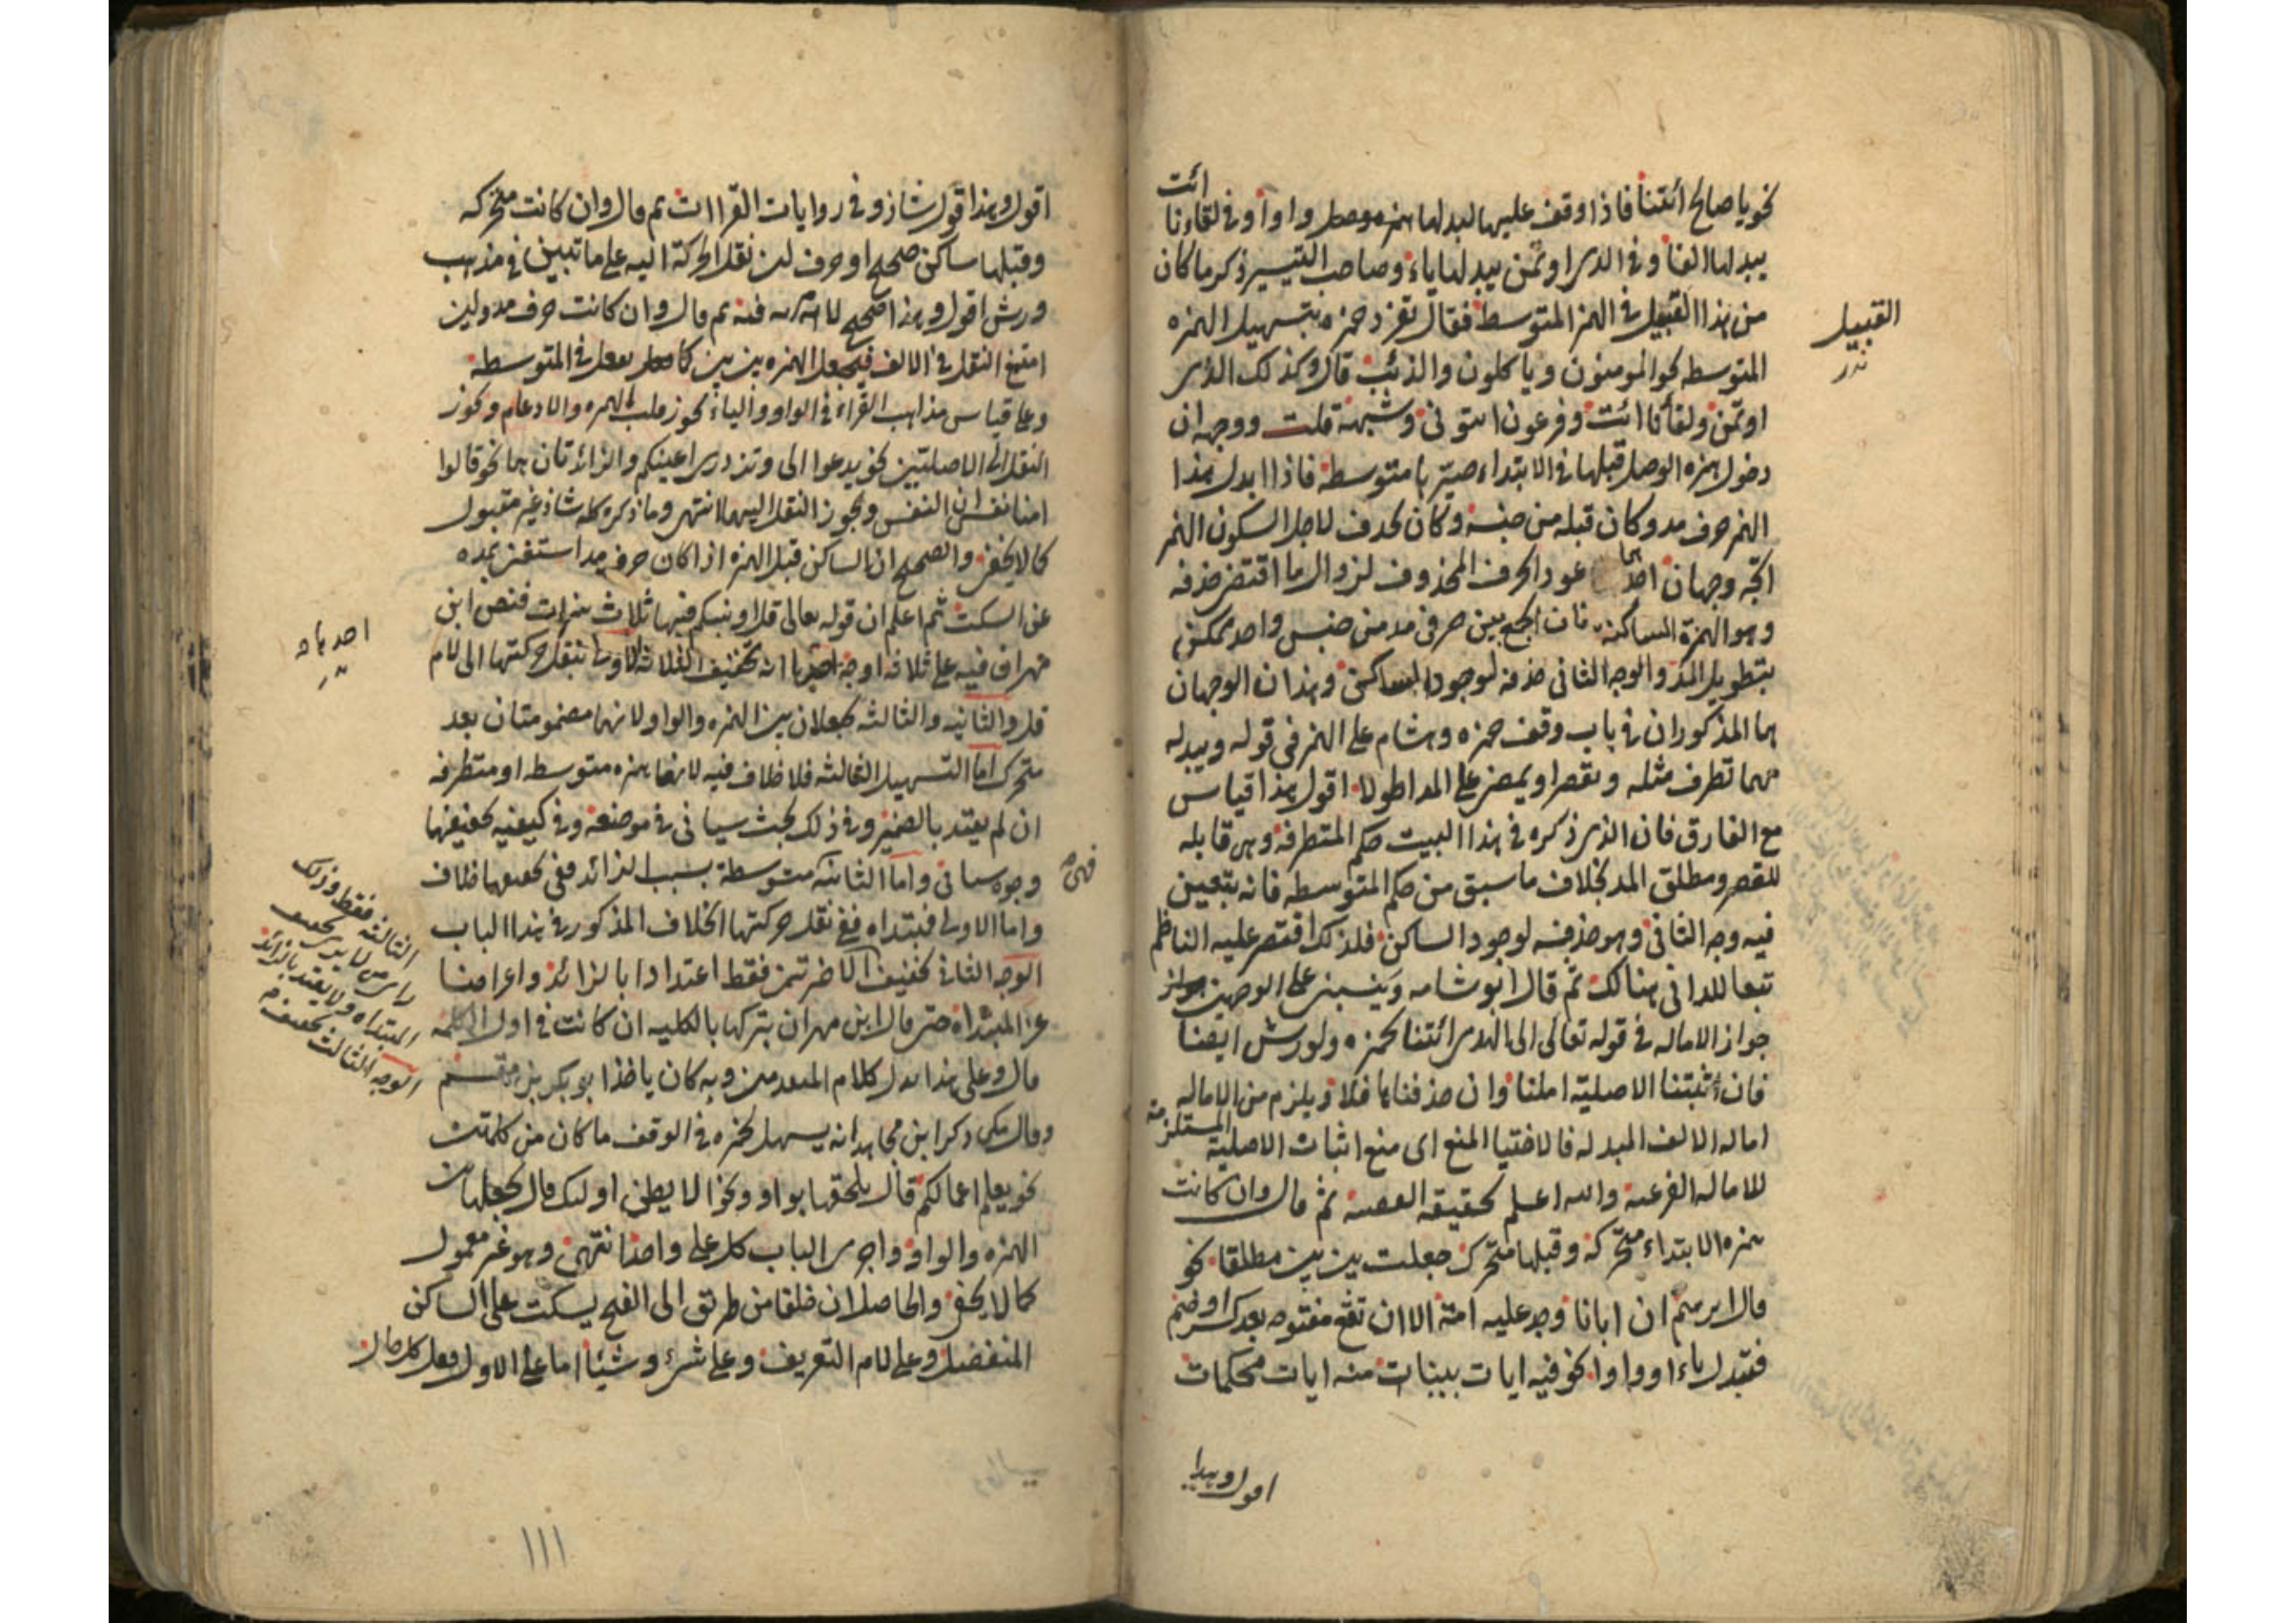 ائت
نحو يا صالح ائتنا فاذا وقف عليها ابدلها همزه وصل واوا وفي لقاءنا
يبدلها الفا وفي الذي اوتمن يبدلها ياء وصاحب التيسير ذكر ما كان
من هذا القبيل في الهمز المتوسط فقال تفرد حمزه بتسهيل الهمزه
القبيل
المتوسطه نحو المومنون وياكلون والذئب قال وكذلك الذي
اوتمن ولقاءنا ائت وفرعون ائتوني وشبهه قلت ووجهه ان
دخول همزه الوصل قبلها في الابتداء صيرها متوسطة فاذا ابدل هذا
الهمز حرف مد وكان قبله من جنسه وكان يحذف لاجل السكون الهمز
اتجه وجهان احدهما عود الحرف المحذوف لزوال ما اقتضى حذفه
وهو الهمزة الساكنه فان الجمع بين حرفي مد من جنس واحد ممكن
بتطويل المد والوجه الثاني حذفه لوجود الساكن وهذان الوجهان
هما المذكوران في باب وقف حمزه وهشام على الهمز في قوله ويبدله
مهما تطرف مثله ويقصر او يمضي على المد اطولا اقول هذا قياس
مع الفارق فان الذي ذكره في هذا البيت حكم المتطرفه وهي قابله
للقصر ومطلق المد بخلاف ما سبق من حكم المتوسطه فانه يتعين
فيه وجه الثاني وهو حذفه لوجود الساكن فلذلك اقتصر عليه الناظم
تبعا للداني هنالك ثم قال ابو شامه وينبني على الوجهين جواز
جواز الاماله في قوله تعالى الى الهدى ائتنا لحمزه ولورش ايضا
فان اثبتنا الاصلية املنا وان حذفناها فلا ويلزم من الاماله
اماله الالف المبدله فالاختيار المنع اى منع اثبات الاصلية المستلزمة
للاماله الفرعيه والله اعلم بحقيقه القضيه ثم قال وان كانت
همزه الابتداء متحركه وقبلها متحرك جعلت بين بين مطلقا نحو
قال ابرهيم ان ابانا وجد عليه امة الا ان تقع مفتوحه بعد كسر او ضم
فتبدل ياء او واوا نحو فيه ايات بينات منه ايات محكمات
اقول وهذا
اقول وهذا قول شاذ وفي روايات القراات ثم قال وان كانت متحركه
وقبلها ساكن صحيح او حرف لين نقل الحركة اليه على ما تبين في مذهب
ورش اقول وهذا صحيح لا مريه فيه ثم قال وان كانت حرف مد ولين
امتنع النقل في الالف فيجعل الهمزه بين بين كما يفعل في المتوسطه
وعلى قياس مذاهب القراء في الواو والياء يجوز قلب الهمزه والادغام ويجوز
النقل الى الاصليتين نحو يدعوا الى وتزدري اعينكم والزائدتان هما نحو قالوا
امنا نفس ان النفس ويجوز النقل اليهما انتهى وما ذكره كله شاذ غير مقبول
كما لا يخفى والصحيح ان الساكن قبل الهمزه اذا كان حرف مد استغنى بمده
عن السكت ثم اعلم ان قوله تعالى قل اونبيكم فيها ثلاث همزات فنص ابن
مهران فيه على ثلاثه اوجه احدها انه تخفيف الثلاثه الاولى بنقل حركتها الى لام
احدها
قل والثانيه والثالثه يجعلان بين الهمزه والواو لانهما مضمومتان بعد
متحرك اما التسهيل الثالثه فلا خلاف فيه لانها همزه متوسطه او متطرفه
ان لم يعتد بالضمير وفي ذلك بحث سياتي في موضعه وفي كيفيه تخفيفها
وجوه سياتي واما الثانيه متوسطة بسبب الزائد ففي تخفيفها خلاف
فهي
واما الاولى فمبتداه ففي نقل حركتها الخلاف المذكور في هذا الباب
الوجه الثاني تخفيف الاخرتين فقط اعتدادا بالزائد واعراضا
عن المبتداه حتى قال ابن مهران يتركها بالكليه ان كانت في اول الكلمه
الثالثه فقط وذلك
راى من لا يرى تخفيف
المبتداه ولا يعتد بالزائد
الوجه الثالث تخفيف
قال وعلى هذا يدل كلام المتقدمين وبه كان ياخذ ابو بكر بن مقسم
وقال مكي ذكر ابن مجاهد انه يسهل لحمزه في الوقف ما كان من كلمتين
نحو يعلم اعمالكم قال يلحقها بواو ونحو الا يظن اوليك قال يجعلها بين
الهمزه والواو واجرى الباب كله على واحد انتهى وهو غير معمول
كما لا يخفى والحاصل ان خلفا من طريق ابى الفتح يسكت على الساكن
المنفصل وعلى لام التعريف وعلى شيء وشيئا اما على الاول فعل كل حال
١١١